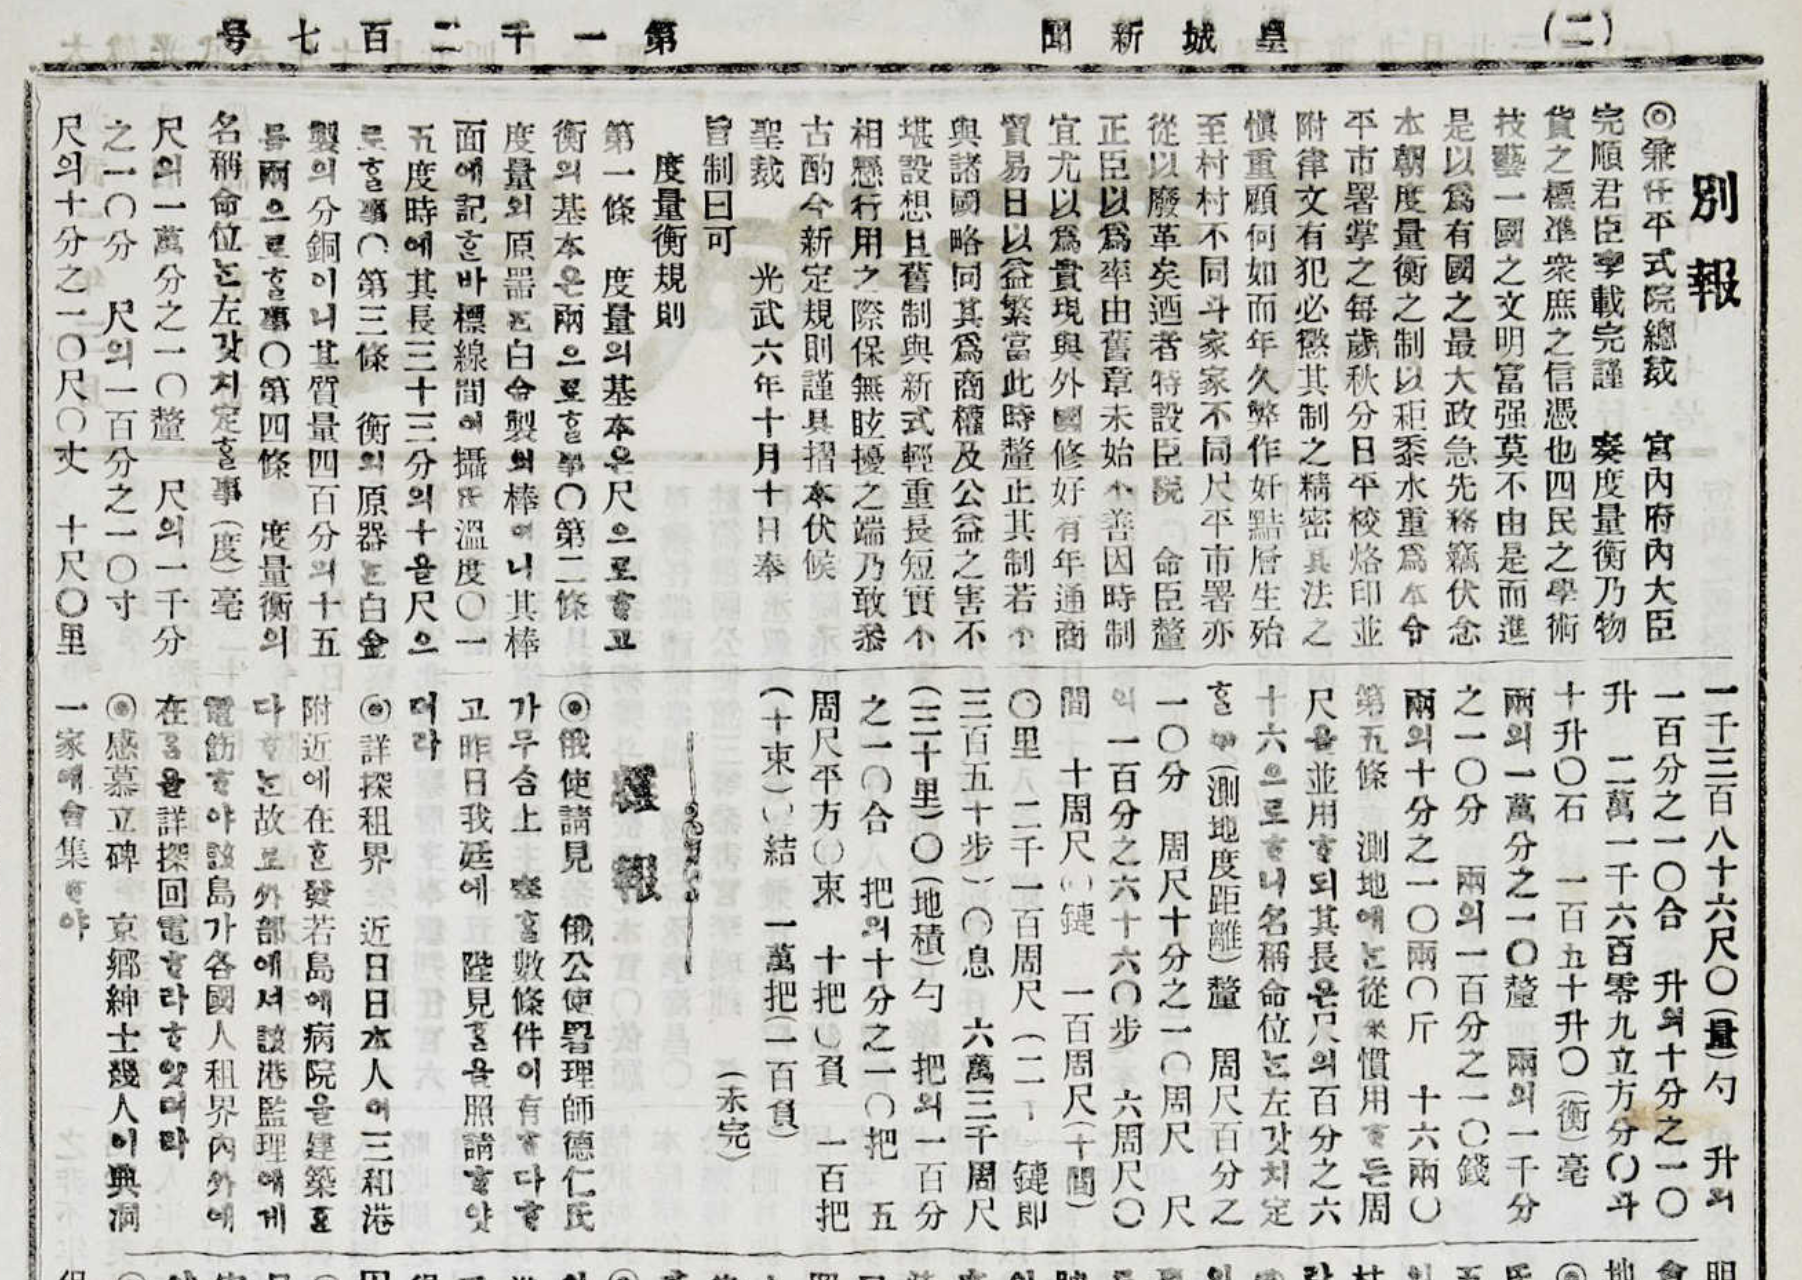 (二)
皇城新聞
第一千二百七号
別報
◎兼任平式院總裁 宮內府內大臣
完順君臣李載完謹 奏度量衡乃物
貨之標準衆庶之信憑也四民之學術
技藝一國之文明富强莫不由是而進
是以爲有國之最大政急先務竊伏念
本朝度量衡之制以秬黍水重爲本令
平市署掌之每歲秋分日平校烙印並
附律文有犯必懲其制之精密其法之
愼重顧何如而年久弊作奸點層生殆
至村村不同斗家家不同尺平市署亦
從以廢革矣迺者特設臣院 命臣釐
正臣以爲率由舊章未始不善因時制
宜尤以爲貴現與外國修好有年通商
貿易日以益繁當此時釐正其制若不
與諸國略同其爲商權及公益之害不
堪設想且舊制與新式輕重長短實不
相懸行用之際保無眩擾之端乃敢叅
古酌今新定規則謹具摺本伏候
聖裁 光武六年十月十日奉
旨制曰可
度量衡規則
第一條 度量의基本은尺으로ᄒᆞ고
衡의基本은兩으로ᄒᆞᆯ事○第二條
度量의原器ᄂᆞᆫ白金製의棒이니其棒
面에記ᄒᆞᆫ바標線間이攝氏溫度○一
五度時에其長三十三分의十을尺으
로ᄒᆞᆯ事○第三條 衡의原器ᄂᆞᆫ白金
製의分銅이니其質量四百分의十五
를兩으로ᄒᆞᆯ事○第四條 度量衡의
名稱命位ᄂᆞᆫ左갓치定ᄒᆞᆯ事(度)毫
尺의一萬分之一○釐 尺의一千分
之一○分 尺의一百分之一○寸
尺의十分之一○尺○丈 十尺○里
一千三百八十六尺○(量)勺 升의
一百分之一○合 升의十分之一○
升 二萬一千六百零九立方分○斗
十升○石 一百五十升○(衡)毫
兩의一萬分之一○釐 兩의一千分
之一○分 兩의一百分之一○錢
兩의十分之一○兩○斤 十六兩○
第五條 測地에ᄂᆞᆫ從來慣用ᄒᆞ든周
尺을並用ᄒᆞ되其長은尺의百分之六
十六으로ᄒᆞ니名稱命位ᄂᆞᆫ左갓치定
ᄒᆞᆯ事(測地度距離)釐 周尺百分之
一○分 周尺十分之一○周尺 尺
의一百分之六十六○步 六周尺○
間 十周尺○鏈 一百周尺(十間)
○里 二千一百周尺(二一 鏈即
三百五十步)○息 六萬三千周尺
(三十里)○(地積)勺 把의一百分
之一○合 把의十分之一○把 五
周尺平方○束 十把○負 一百把
(十束)○結 一萬把(一百負)
(未完)
雜報
◎俄使請見 俄公使署理師德仁氏
가무合上奏ᄒᆞᆯ數條件이有ᄒᆞ다ᄒᆞ
고昨日我廷에 陛見ᄒᆞᆷ을照請ᄒᆞ얏
더라
◎詳探租界 近日日本人이三和港
附近에在ᄒᆞᆫ發若島에病院을建築ᄒᆞᆫ
다ᄒᆞᄂᆞᆫ故로外部에셔該港監理에게
電飭ᄒᆞ야該島가各國人租界內外에
在ᄒᆞᆷ을詳探回電ᄒᆞ라ᄒᆞ얏더라
◎感慕立碑 京鄕紳士幾人이典洞
一家에會集ᄒᆞ야